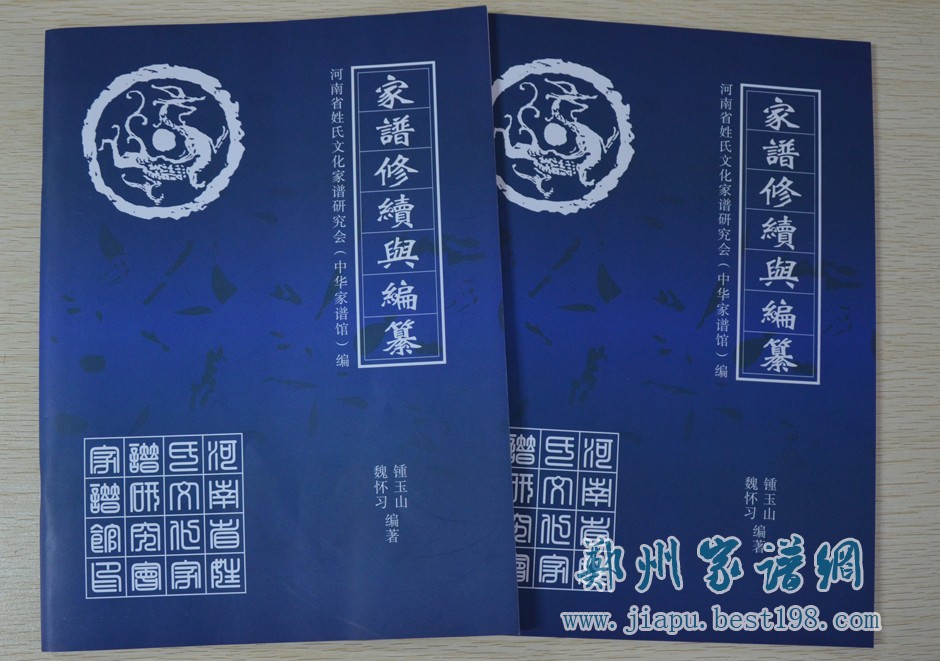 家譜修續與編纂
河南省姓氏文化家谱研究会（中华家谱馆）编
锺玉山
魏怀习 编著
河南省姓
氏文化家
譜研究會
家譜館印
家譜修續與編纂
河南省姓氏文化家谱研究会（中华家谱馆）编
锺玉山
魏怀习 编著
河南省
氏文化家
譜研究會
鄭州家谱網
www.jiapu.best198.com